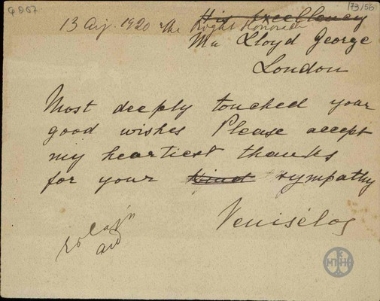 13 Aug. 1920 The Right Honorable
His Excellency
Mr Lloyd George
London
Most deeply touched your
good wishes Please accept
my heartiest thanks
for your kind sympathy
Venisélos